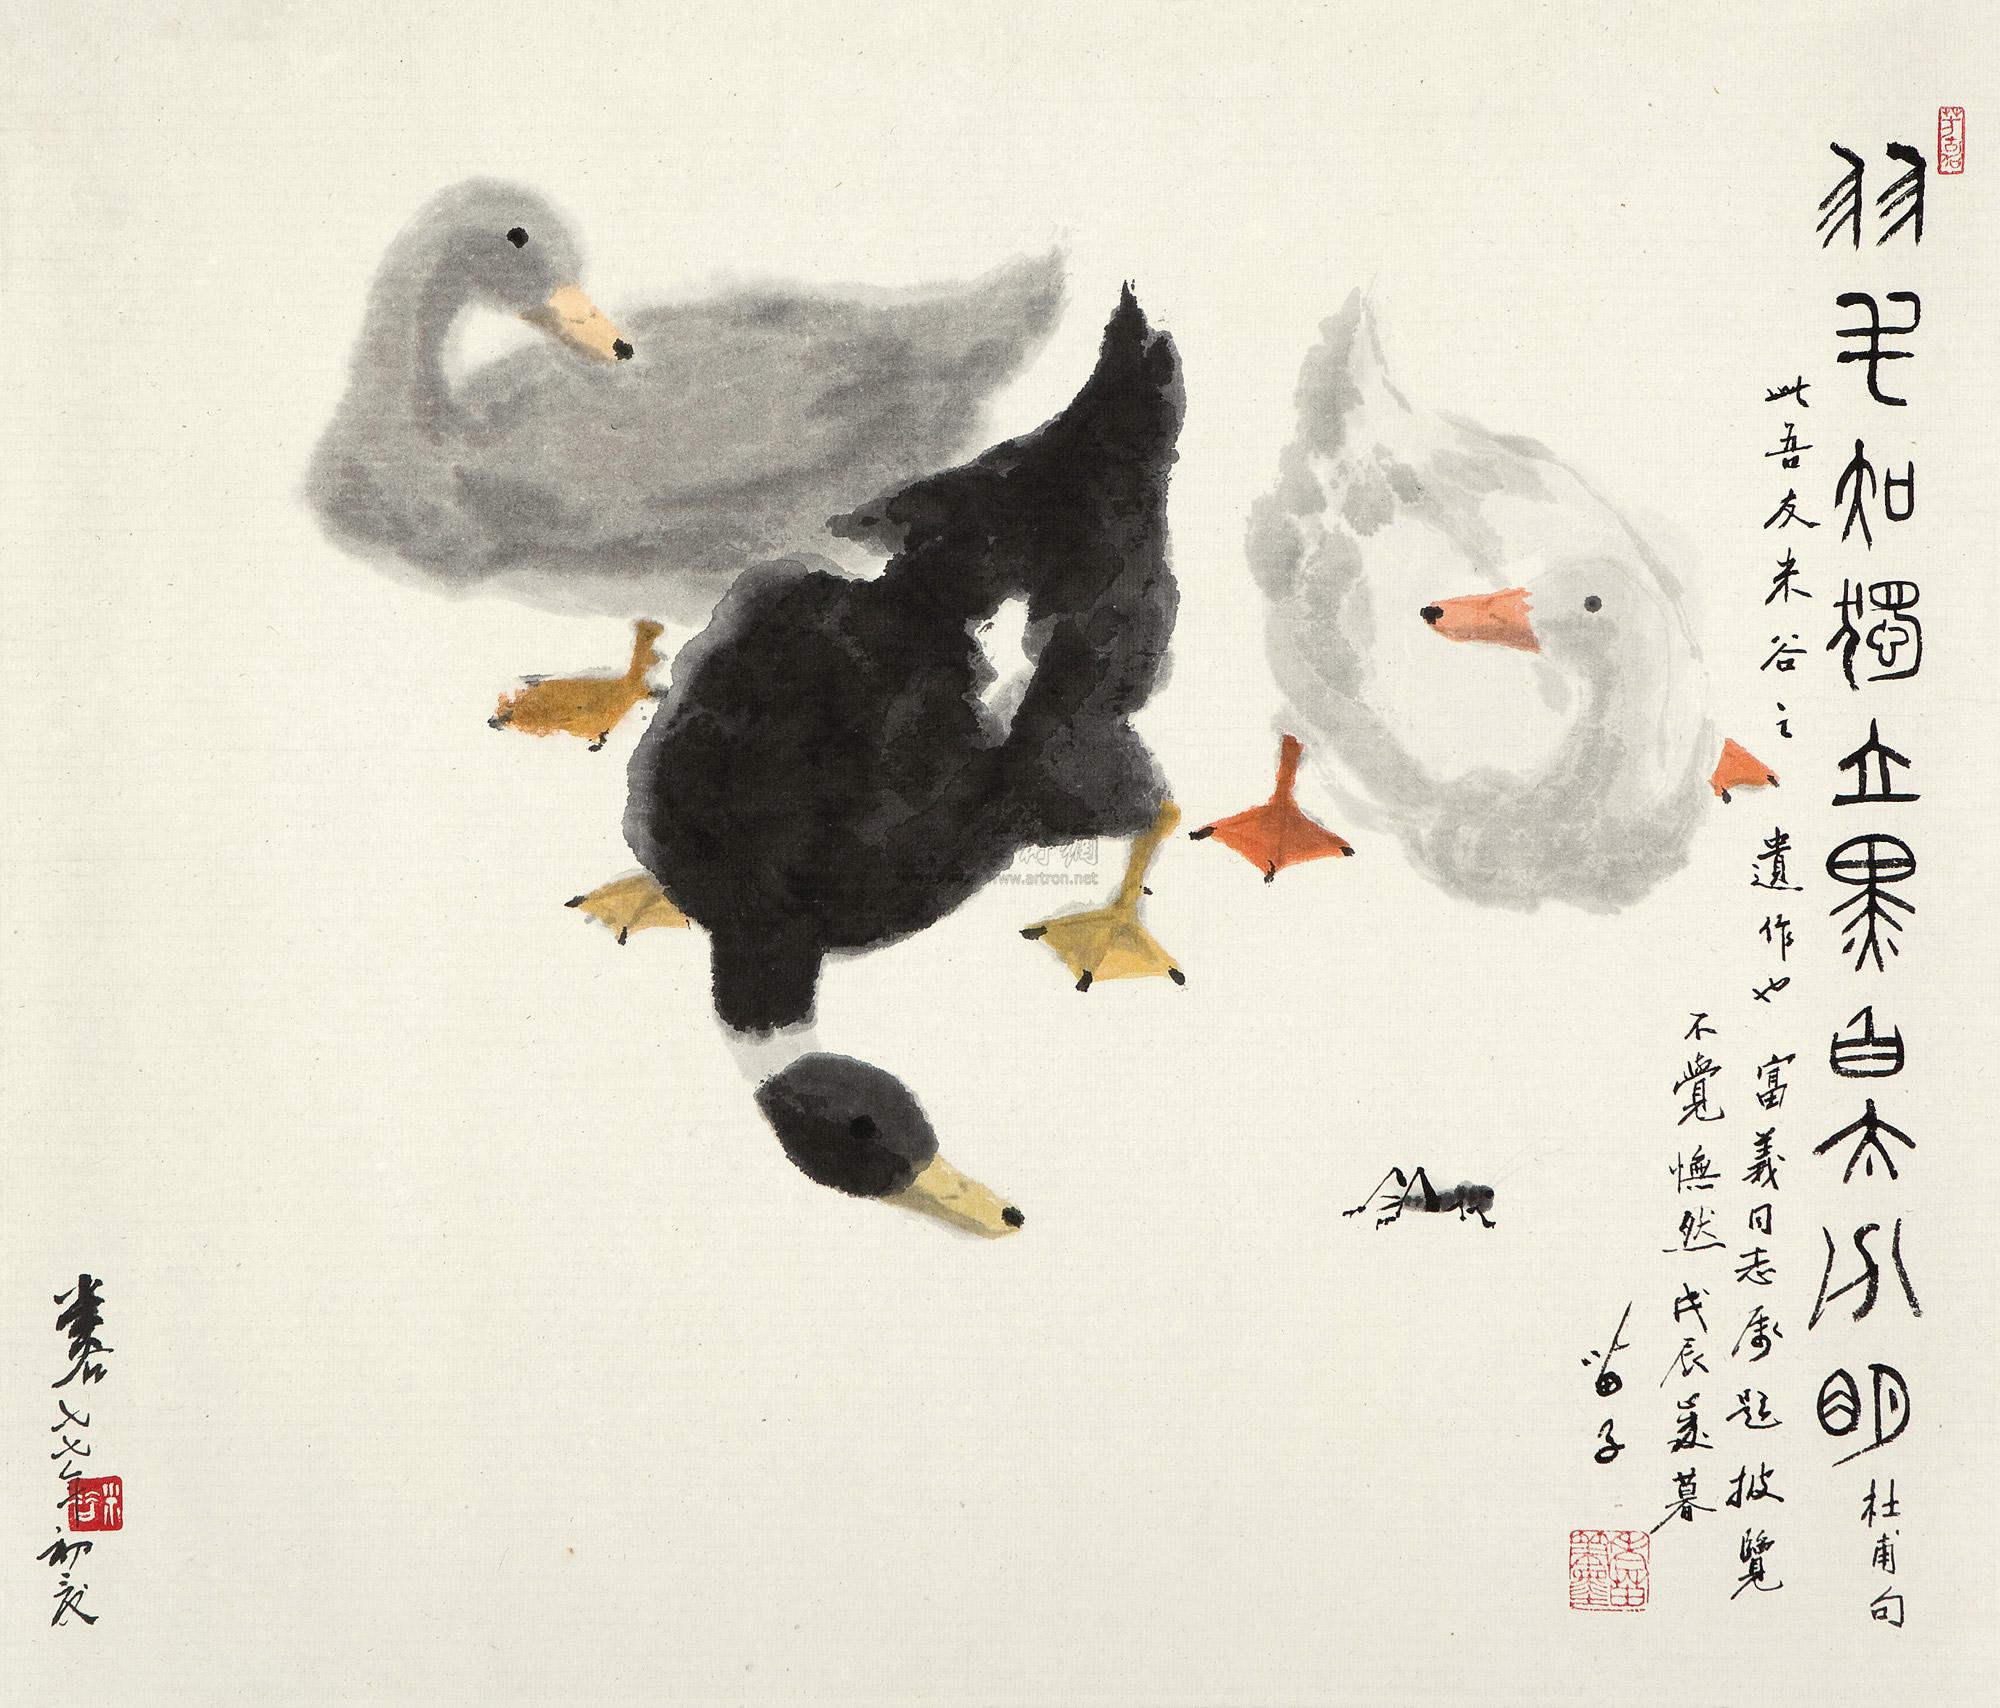 羽毛知獨立黑白太分明
杜甫句
此吾友米谷之遺作也富義同志屬題披覽
不覺憮然戊辰歲暮
苗子
米谷七七年初夜
米谷
www.artron.net